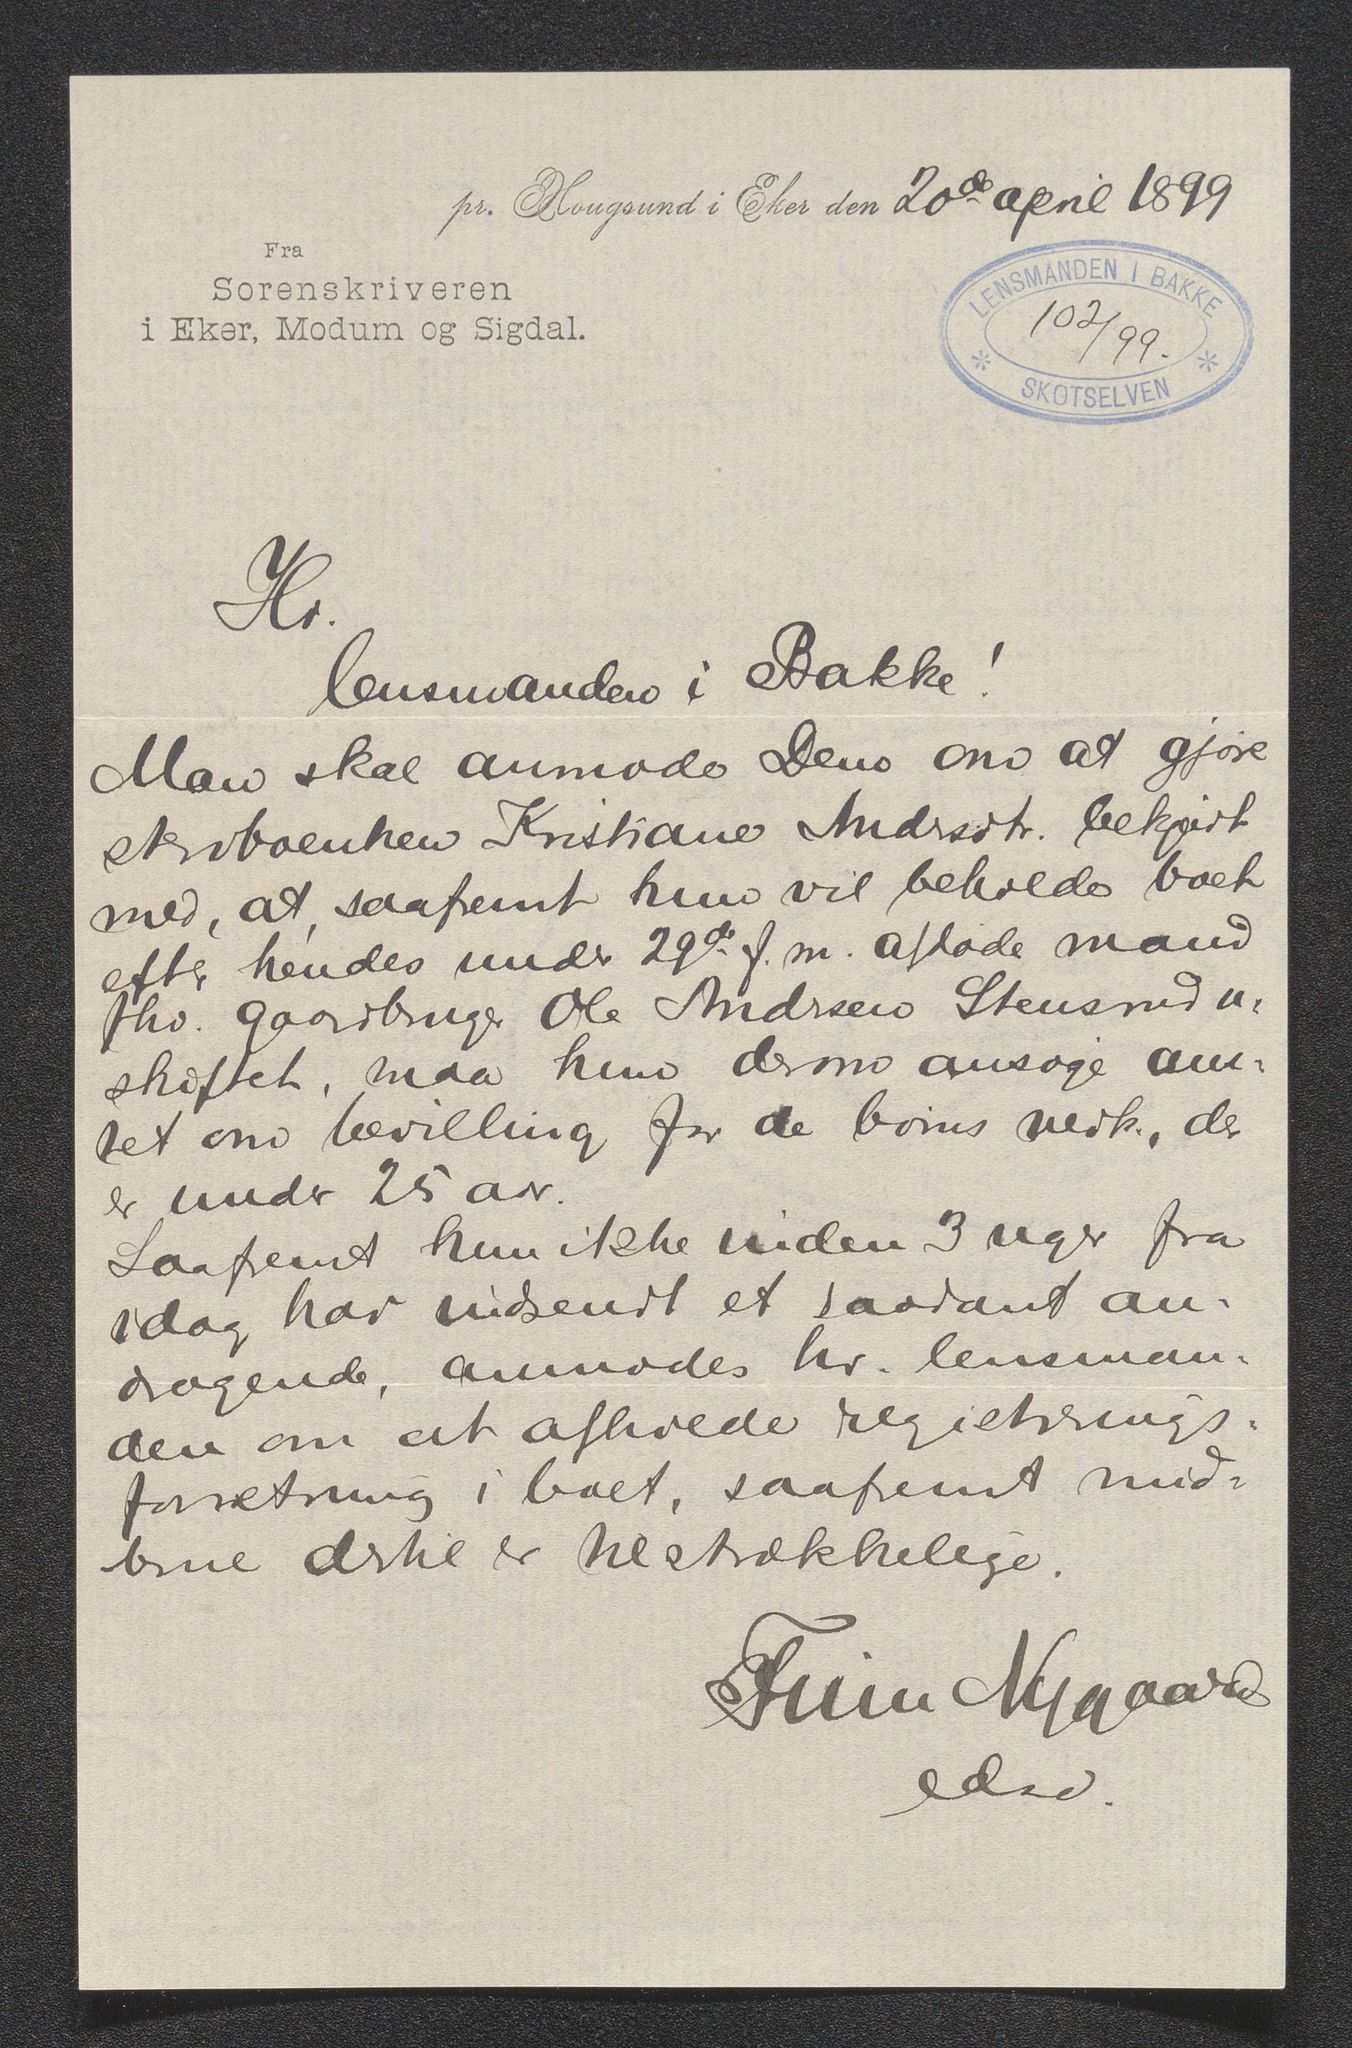 pr. Hougsund i Eker den 20de april 1899
Fra
Sorenskriveren
i Eker, Modum og Sigdal.
LENSMANDEN I BAKKE
102/99.
* SKOTSELVEN *
Hr.
lensmanden i Bakke!
Man skal anmode Dem om at gjøre
skriboenken Kristiane Andersdtr. bekjendt
med, at, saafremt hun vil beholde boet
efter hendes under 29de f. m. afdøde mand
fhv. gaardbruger Ole Andersen Stensrud u-
skiftet, maa hun derom ansøge am-
tet om bevilling for de børns vedk., der
er under 25 aar.
Saafremt hun ikke inden 3 uger fra
idag har indsendt et saadant an-
dragende, anmodes hr. lensman-
den om at afholde registrerings-
forretning i boet, saafremt mid-
lerne dertil er tilstrækkelige.
Nygaard
edsv.